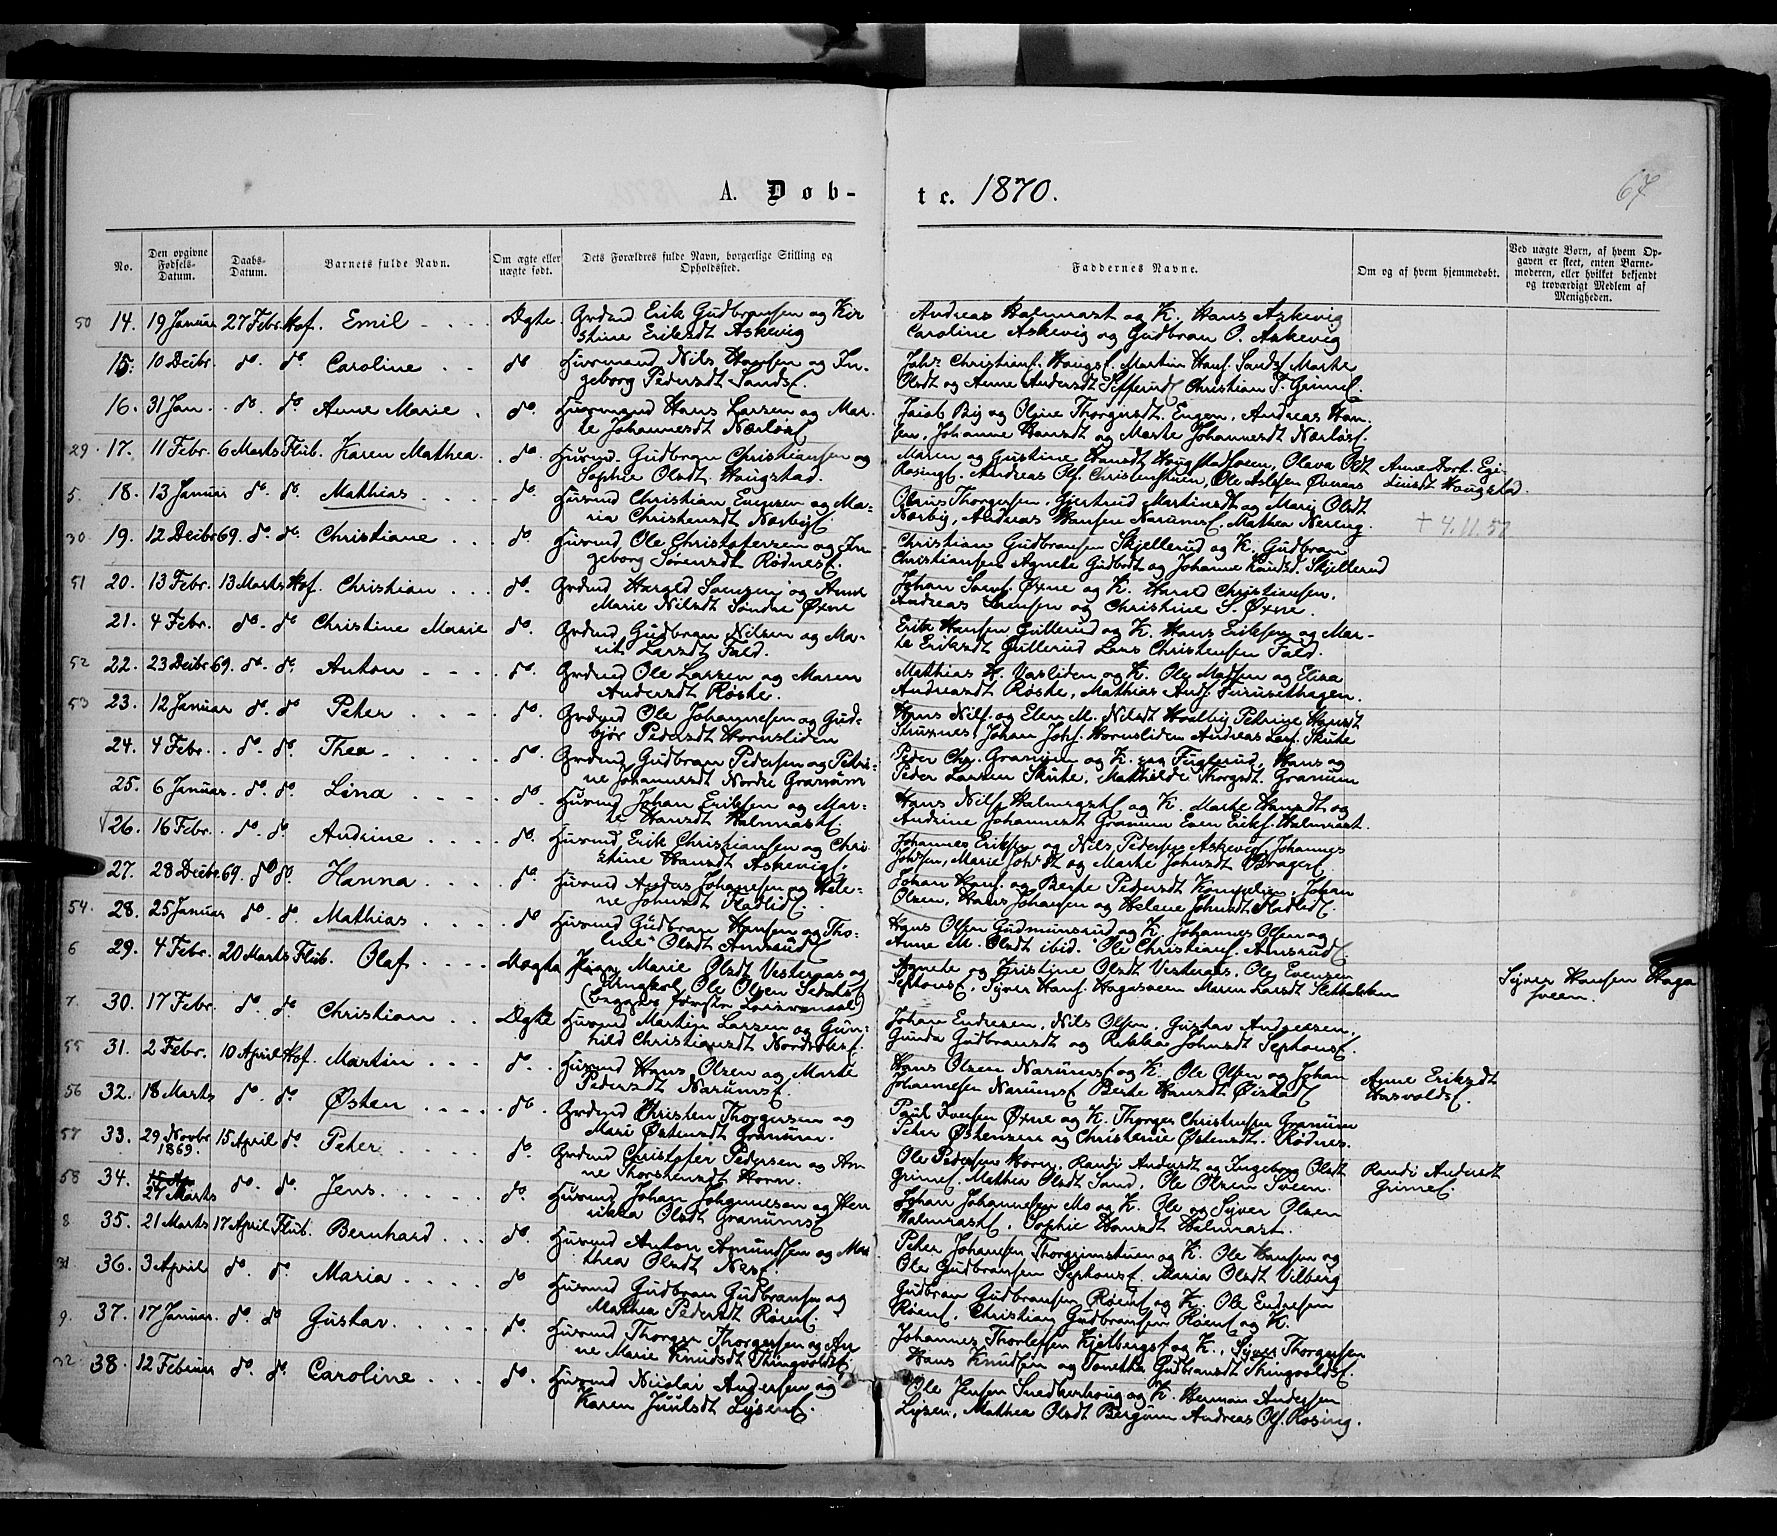 A. Døb-
te. 1870.
67
No.
Den opgivne Fødsels-Datum.
Daabs-Datum.
Barnets fulde Navn.
Om ægte eller uægte født.
Dets Forældres fulde Navn, borgerlige Stilling og Opholdssted.
Faddernes Navne.
Om og af hvem hjemmedøbt.
Ved uægte Børn, af hvem Opgaven er skeet, enten Barnemoderen, eller hvilket bekjendt og troværdigt Medlem af Menigheden.
50 14. 19 Januar 27 Febr. Hof. Emil Ægte Grdmd Erik Gudbransen og Kir
stine Eriksdt Askevig
Andreas Halmrast og K. Hans Askevig
Caroline Askevig og Gudbran O. Askevig
15. 10 Decbr. do. do. Caroline do Huusmand Nils Hansen og In-
geborg Pedersdt Sands
Christians. Haugs. Martin Hans. Sands. Marte
Olsdt og Anne Andersdt Christian T. Grime.
16. 31 Jan. do. do. Anne Marie do. Huusmand Hans Larsen og Mar-
te Johannesdt
Jacob Big og Oline Thorgersdt. Engen, Andreas Han-
sen, Johanne Hansdt og Marte Johannesdt
29. 17. 11 Febr. 6 Marts Flub. Karen Mathea. do. Huusmd. Gudbran Christiansen og
Sophie Olsdt Haugstad.
Maren og Gustine Hansdt Olava Oldt
Andreas Ols. Ole Aslesen
Anne Dort. Egi-
diusdt Haugstad.
5. 18. 13 Januar do. do. Mathias do. Huusmd Christian Evensen og Ma-
ria Christensdt Nærby
Olaus Thorgersen, Gjertrud Martinsdt og Mari Olsdt
Nærby, Andreas Hansen Narums. Mathea Nereng.
30. 19. 12 Decbr 69. do. do. Christiane do. Huusmd Ole Christofersen og In-
geborg Sørensdt Rødnes
Christian Gudbransen Skjellerud og K. Gudbran
Christiansen Agnete Gudbrdt og Johanne Skjellerud
+ 4.11.57
51 20. 13 Febr. 13 Marts Hof. Christian do. Grdmd Harald Svensen og Anne
Marie Nilsdt Søndre Øxne
Johan Øxne og K. Harald Christiansen,
Andreas og Christine S. Øxne.
21. 4 Febr. do. do Christine Marie do. Grdmd Gudbran Nilsen og Ma-
rit Larsdt Fald.
Erik Hansen Gullerud og K. Hans Eriksen og Mar-
te Eriksdt Gullerud Lars Christensen Fald.
52 22. 23 Decbr 69. do. do. Anton do. Grdmd Ole Larsen og Maren
Andersdt Røste.
Mathias H. Vasliden og K. Ole Madsen og Elisa
Andreasdt Røste, Mathias And. Furusethagen.
53 23. 12 Januar do. do Peter do. Grdmd Ole Johannesen og Gud-
bjør Pedersdt Hornsliden
Hans Nils. og Elen M. Nilsdt Hvalby Petrine Hansdt
Johan Johs. Hornsliden Andreas Lars. Skute
24. 4 Febr. do. do. Thea do. Grdmd Gudbran Pedersen og Petri-
ne Johannesdt Nordre Granum
Peder Chr. Granum og K. Fuglerud, Hans og
Peder Larsen Skute, Mathilde Thorgsdt. Granum
25. 6 Januar. do. do. Lina do. Huusmd Johan Eriksen og Mar-
te Hansdt Halmrast
Hans Nils. Halmrast og K. Marte Hansdt og
Andrine Johannesdt Granum Even Eriks. Halmrast.
26. 16 Febr. do. do. Andrine do. Huusmd Erik Christiansen og Chri
stine Hansdt Askevig
Johannes Eriksen og Nils Pedersen Askevig Johannes
Johsen, Marie Johsdt og Marte Johnsdt
27. 28 Decbr. 69. do do. Hanna do. Huusmd Anders Johansen og Hele-
ne Johnsdt Fladlid
Johan Hans. og Berte Pedersdt Johan
Olsen, Hans Johansen og Helene Johnsdt Fladlid
54. 28. 25 Januar do. do. Mathias do Huusmd Gudbran Hansen og Tho-
line Olsdt Amsrud
Hans Olsen Gudmunsrud og K. Johannes Olsen og
Anne M. Olsdt ibid. Ole Christians. Amsrud
6 29. 4 Febr. 20 Marts Flub. Olaf Uægte Pigen Marie Olsdt Vesteraas og
Ungkarl Ole Olsen
(begge)
Agnete og Kristine Olsdt Vesteraas, Ole Evensen
Syver Hans. Hagasveen Maren Larsdt
Syver Hansen Haga
sveen.
7. 30. 17 Febr. do. do: Christian Ægte Huusmd Martin Larsen og Gun-
hild Christiansdt
Johan Endresen, Nils Olsen, Gustav Andreesen,
Gunda Gudbransdt og Rikka Johnsdt
55 31. 2 Febr. 10 April Hof. Martin do. Huusmd Hans Olsen og Marte
Pedersdt Narums
Hans Olsen Narums og K. Ole Olsen og Johan
Johannesen Narums Berte Hansdt Øistad
Anne Eriksdt
Hasvolds
56 32. 18 Marts do. do Østen do. Grdmd Christen Thorgersen og
Mari Østensdt Granum.
Paul Iversen Øxne og K. Thorger Christensen Granum
Peter Østensen og Christense Østensdt. Rødnes.
57 33. 29 Novbr
1869. 15 April do Peter do. Grdmd Christofer Pedersen og An-
ne Thorstensdt Horn.
Ole Pedersen Horn, Randi Andersdt og Ingeborg Olsdt
Grime. Mathea Olsdt Sand, Ole Olsen Sveen.
Randi Andersdt
Grime
58 34. 15 Ap
27 Marts do. do. Jens do. Huusmd Johan Johannesen og Hen
rikka Olsdt Granums
Johan Johannesen Mo og K. Ole og Syver Olsen
Halmrast, Sophie Hansdt Halmrast.
8 35. 21 Marts 17 April Flub. Bernhard do. Huusmd Anton Amundsen og Ma
thea Olsdt Nes
Peter Johansen Thorgrimstuen og K. Ole Hansen og
Ole Gudbransen Maria Olsdt Vilberg
31 36. 3 April do. do. Maria do Huusmd Gudbran Gudbransen og
Mathea Pedersdt Røen
Gudbran Gudbransen Røen og K. Ole Endresen
Røen, Christian Gudbransen Røen og K.
9. 37. 17 Januar. do do Gustav. do. Huusmd Thorger Thorgersen og An
ne Marie Knudsdt Thingvolds
Johannes Thorleifsen Kjelbergs og K., Syver Thorgersen
Hans Knudsen og Tonetta Gudbransdt Thingvolds.
32. 38. 12 Februar do. do. Caroline do. Huusmd Nicolai Andersen og
Karen Juulsdt Lysen
Ole Jensen Snedkerhaug og K. Herman Andersen
Lysen, Mathea Olsdt Bergum Andreas Ols. Rosing.